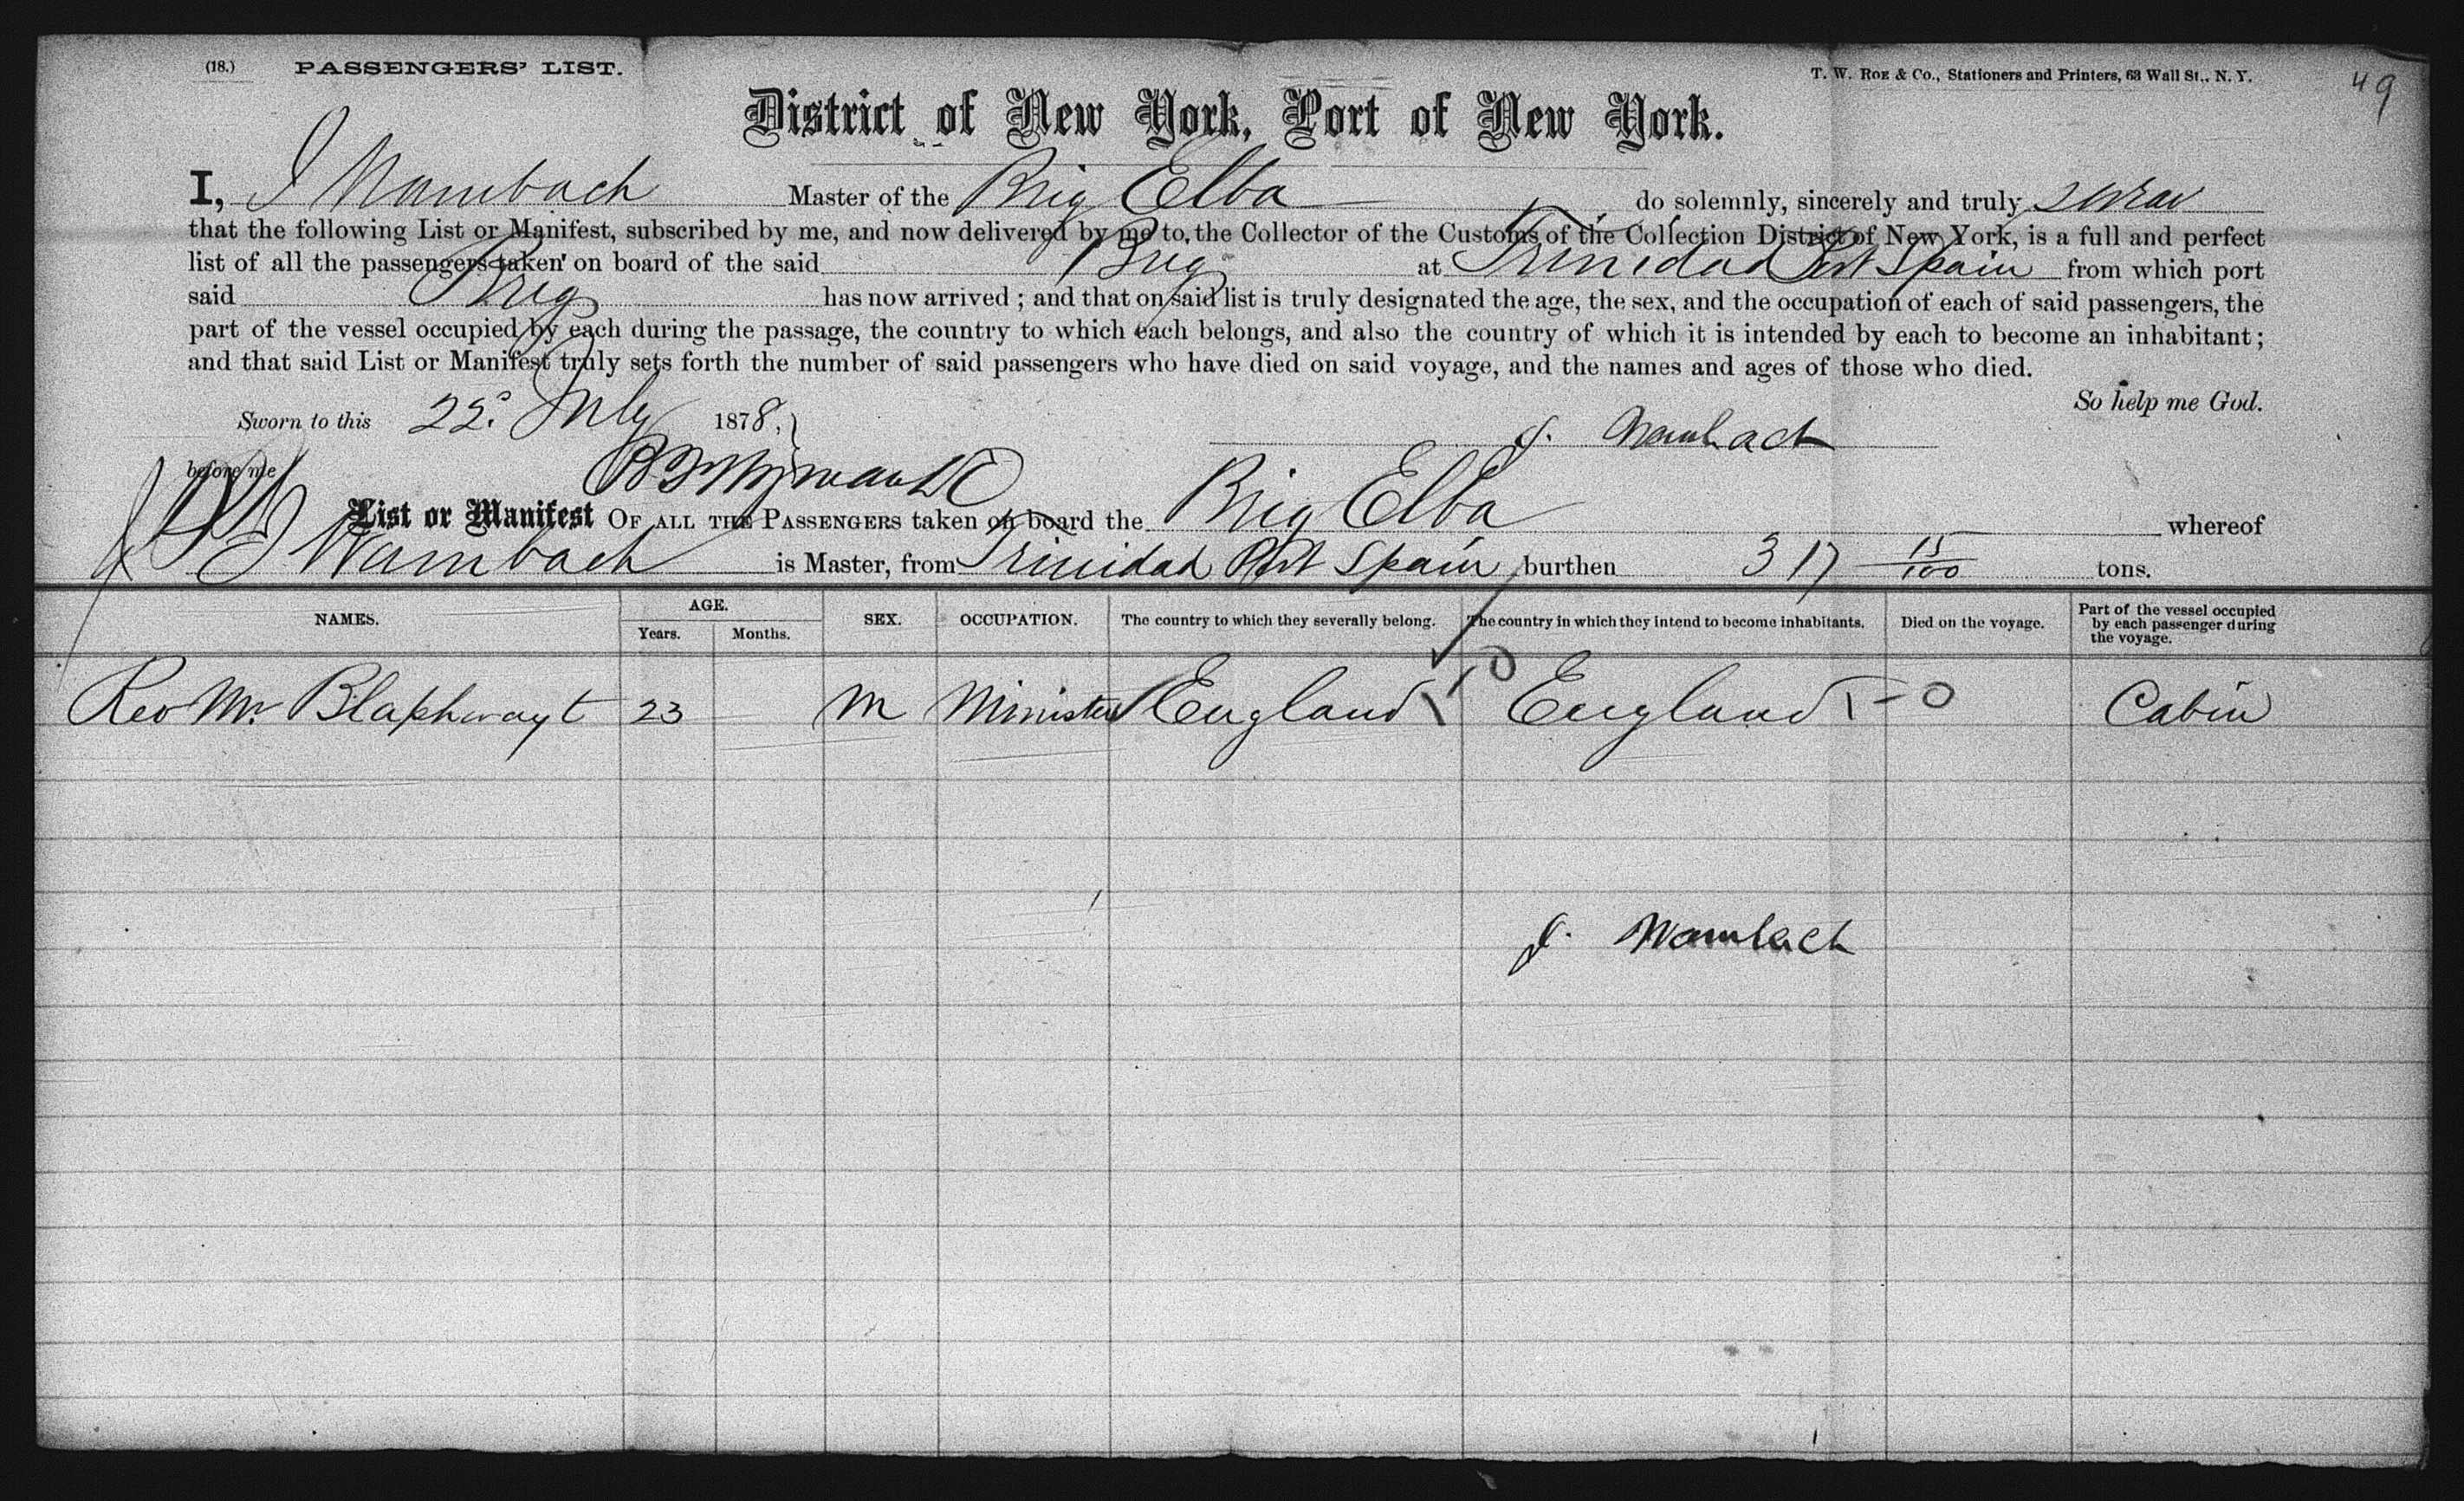 (18.) PASSENGERS' LIST. T. W. ROE & Co., Stationers and Printers, 63 Wall St., N. Y. 49
District of New York, Port of New York.
I, J Wambach Master of the Brig Elba do solemnly, sincerely and truly swear
that the following List or Manifest, subscribed by me, and now delivered by me to the Collector of the Customs of the Collection District of New York, is a full and perfect
list of all the passengers taken on board of the said Brig at Trinidad Port Spain from which port
said Brig has now arrived ; and that on said list is truly designated the age, the sex, and the occupation of each of said passengers, the
part of the vessel occupied by each during the passage, the country to which each belongs, and also the country of which it is intended by each to become an inhabitant ;
and that said List or Manifest truly sets forth the number of said passengers who have died on said voyage, and the names and ages of those who died.
So help me God.
Sworn to this 22. July 1878, J. Wambach
before me
List or Manifest OF ALL THE PASSENGERS taken on board the Brig Elba whereof
J Wambach is Master, from Trinidad Port Spain burthen 317 15/100 tons.
NAMES. AGE. Years. Months. SEX. OCCUPATION. The country to which they severally belong. The country in which they intend to become inhabitants. Died on the voyage. Part of the vessel occupied by each passenger during the voyage.
Rev Mr 23 M Minister England England Cabin
J. Wambach